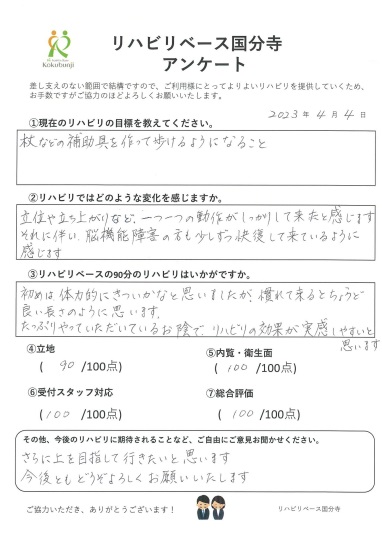 Kokubunji
リハビリベース国分寺
アンケート
差し支えのない範囲で結構ですので、ご利用様にとってよりよいリハビリを提供していくため、
お手数ですがご協力のほどよろしくお願いいたします。
2023 年 4 月 4 日
①現在のリハビリの目標を教えてください。
杖などの補助具を作って歩けるようになること
②リハビリではどのような変化を感じますか。
立位や立ち上がりなど、一つ一つの動作がしっかりして来たと感じます
それに伴い、脳機能障害の方も少しずつ快復して来ているように
感じます
③リハビリベースの90分のリハビリはいかがですか。
初めは体力的にきついかなと思いましたが、慣れて来るとちょうど
良い長さのように思います。
たっぷりやっていただいているお陰で、リハビリの効果が実感しやすいと
思います
④立地
( 90 /100点)
⑤内覧・衛生面
( 100 /100点)
⑥受付スタッフ対応
( 100 /100点)
⑦総合評価
( 100 /100点)
その他、今後のリハビリに期待されることなど、ご自由にご意見お聞かせください。
さらに上を目指して行きたいと思います
今後ともどうぞよろしくお願いいたします
ご協力いただき、ありがとうございます!
リハビリベース国分寺